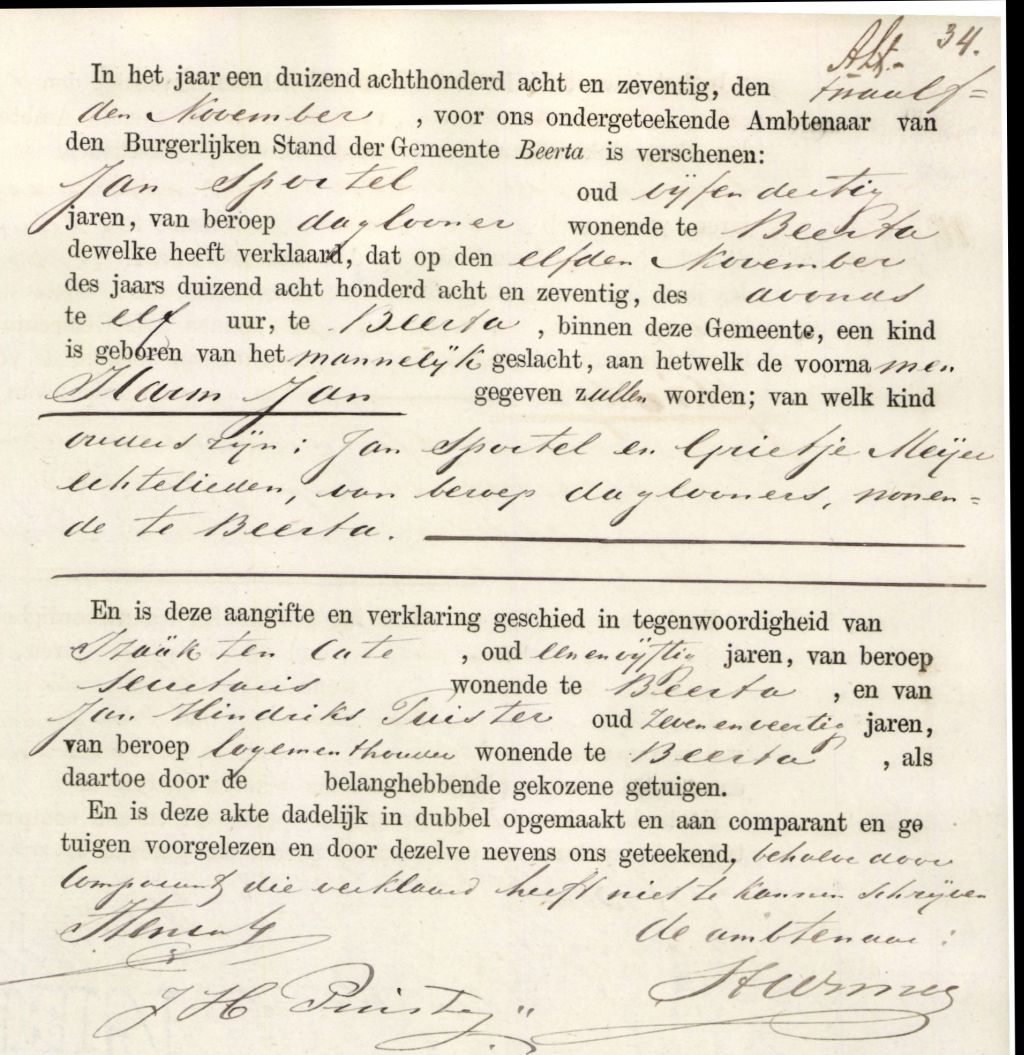 34.
In het jaar een duizend achthonderd acht en zeventig, den twaalf=
den November , voor ons ondergeteekende Ambtenaar van
den Burgerlijken Stand der Gemeente Beerta is verschenen:
Jan Sportel oud vijfendertig
jaren, van beroep daglooner wonende te Beerta
dewelke heeft verklaard, dat op den elfden November
des jaars duizend acht honderd acht en zeventig, des avonds
te elf uur, te Beerta , binnen deze Gemeente, een kind
is geboren van het mannelijk geslacht, aan hetwelk de voornamen
Harm Jan gegeven zullen worden; van welk kind
ouders zijn: Jan Sportel en Grietje Meijer
echtelieden, van beroep daglooners, wonen=
de te Beerta.
En is deze aangifte en verklaring geschied in tegenwoordigheid van
Izaäk ten Cate , oud eenenvijftig jaren, van beroep
secretaris wonende te Beerta , en van
Jan Hindriks Puister oud zevenenveertig jaren,
van beroep logementhouder wonende te Beerta , als
daartoe door de belanghebbende gekozene getuigen.
En is deze akte dadelijk in dubbel opgemaakt en aan comparant en ge
tuigen voorgelezen en door dezelve nevens ons geteekend, behalve door
Comparant, die verklaard heeft niet te kunnen schrijven
de ambtenaar:
J H Puister